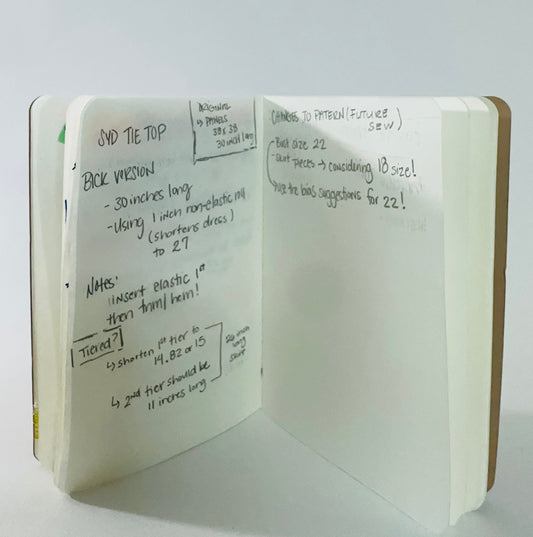 SYD TIE TOP
ORIGINAL
↳ PANELS
38 x 38
30 inch long
BICK VERSION
- 30 inches long
- Using 1 inch non-elastic
(shortens dress)
to 27
Notes:
Insert elastic 1st
then trim/hem!
Tiered?
↳ shorten 1st tier to
14.82 or 15
↳ 2nd tier should be
11 inches long
26 inch
long
skirt
CHANGES TO PATTERN (FUTURE
SEW)
- Bust size 22
- Skirt pieces → considering 18 size!
the bias suggestions for 22!